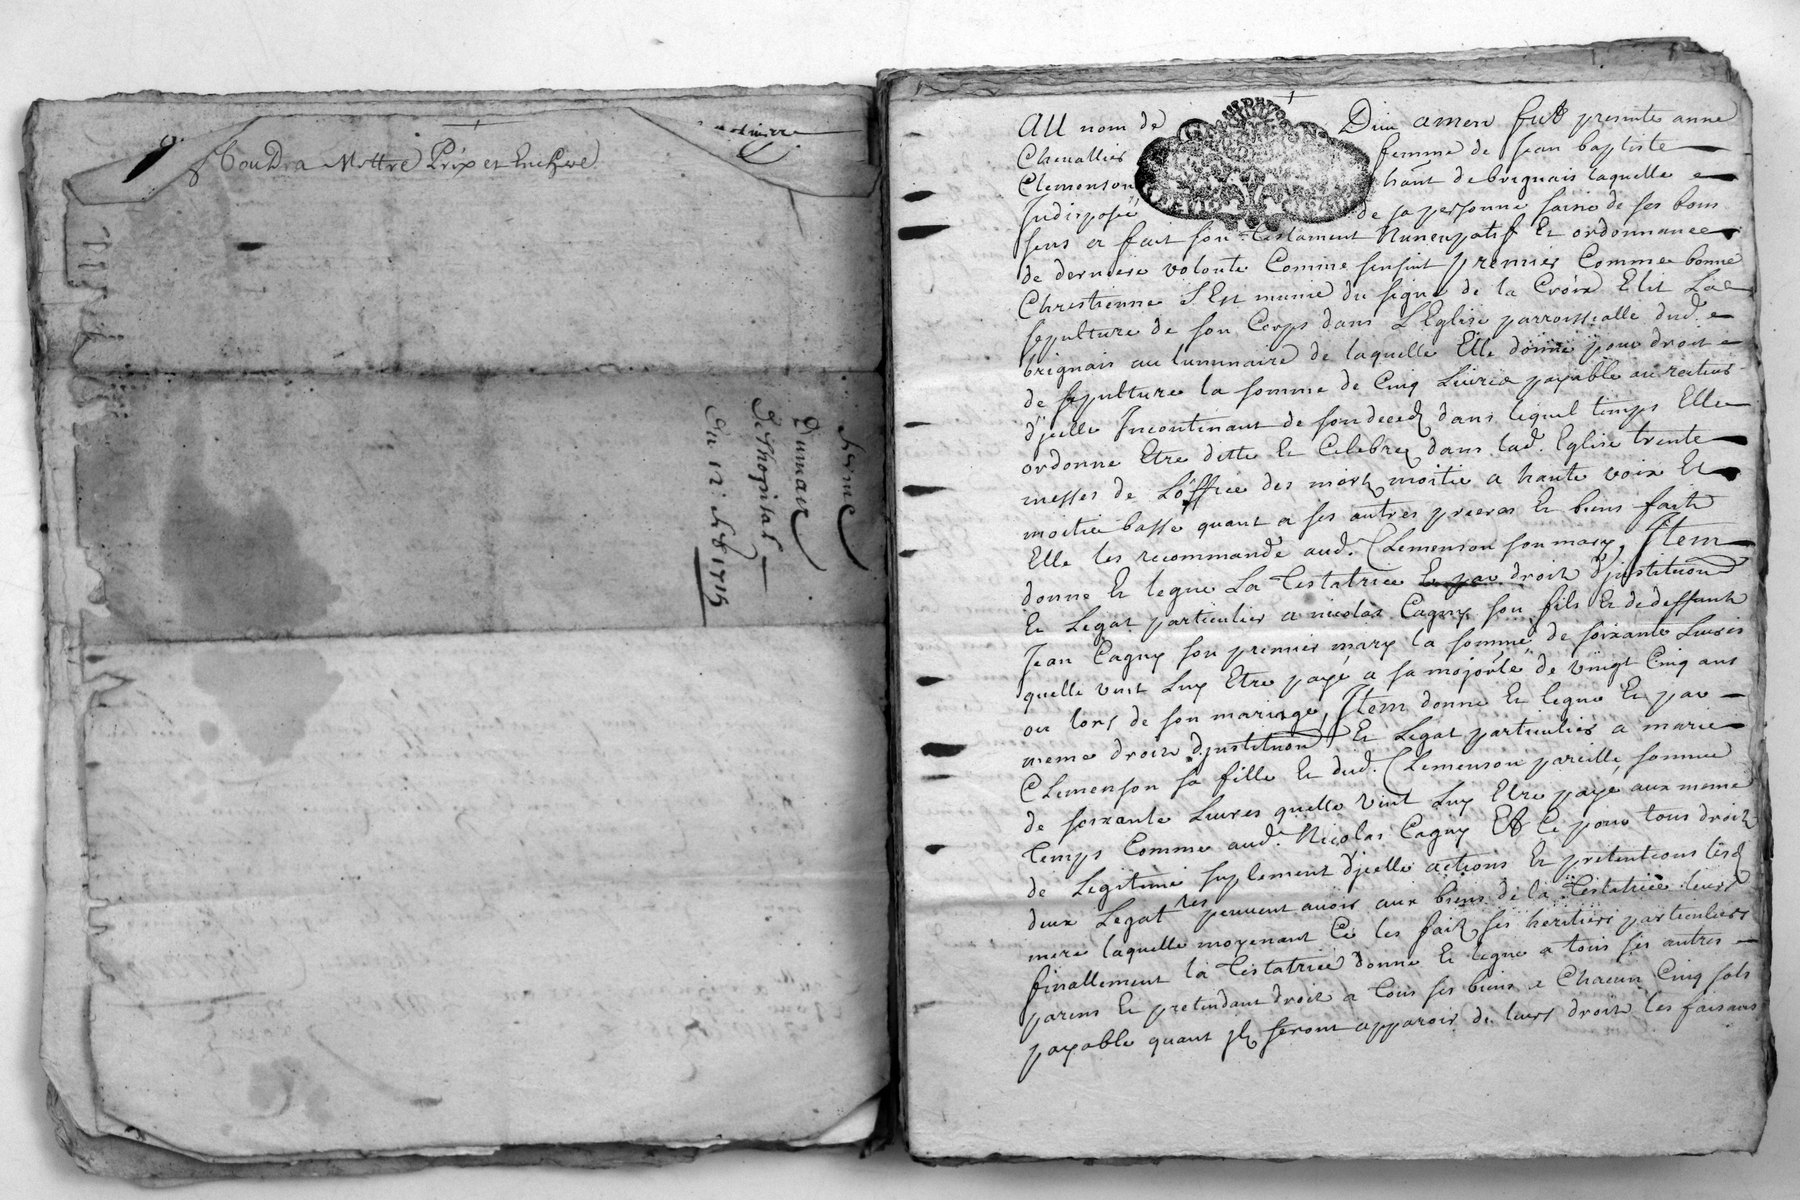 Voudra Mettre Prix et Enchere
ferme
Du mas
De l'hopital
Du 12: feb 1715
AU nom de Dieu amen fut presente anne
Chevallier femme de Jean baptiste
Clemenson hant de brignais laquelle
Indisposée de sa personne saine de ses bons
sens a fait son testament Nuncupatif Et ordonnance
de derniere volonte Comme sensuit premier Comme bonne
Chrestienne S'Est munie du signe de la Croix Elit La
sepulture de son Corps dans L'Eglise parroissialle dud.
brignais au luminaire de laquelle Elle donne pour droit
de sepulture la somme de Cinq Livres payable au recteur
d'jcelle Incontinant de son deced dans lequel temps Elle
ordonne Etre ditte Et Celebrez dans lad. Eglise trente
messes de L'office des mortz moitie a haute voix Et
moitie basse quant a ses autres prieres Et biens faitz
Elle les recommande aud. Clemenson son mary, Item
donne Et legue La Testatrice Et par droit d'jnstitution
Et Legat particulier a nicolas Cagny son fils Et de deffunt
Jean Cagny son premier mary la somme de soixante Livres
quelle veut Luy Etre payé a sa majorité de vingt Cinq ans
ou lors de son mariage, Item donne Et legue Et par
meme droit d'jnstitution Et Legat particulier a marie
Clemenson sa fille Et dud. Clemenson pareille somme
de soixante Livres quelle veut Luy Etre payé aux meme
temps Comme aud. Nicolas Cagny Et Ce pour tous droitz
de Legitime suplement d'jcelle actions Et pretentions lesd
deux Legat.res peuvent avoir aux biens de la Testatrice leurs
mere laquelle moyenant Ce les fait ses heritiers particuliers
finallement la Testatrice donne Et legue a tous ses autres
parens Et pretendant droit a tous ses biens a Chacun Cinq sols
payable quant jlz seront apparoir de leurs droitz les faisant